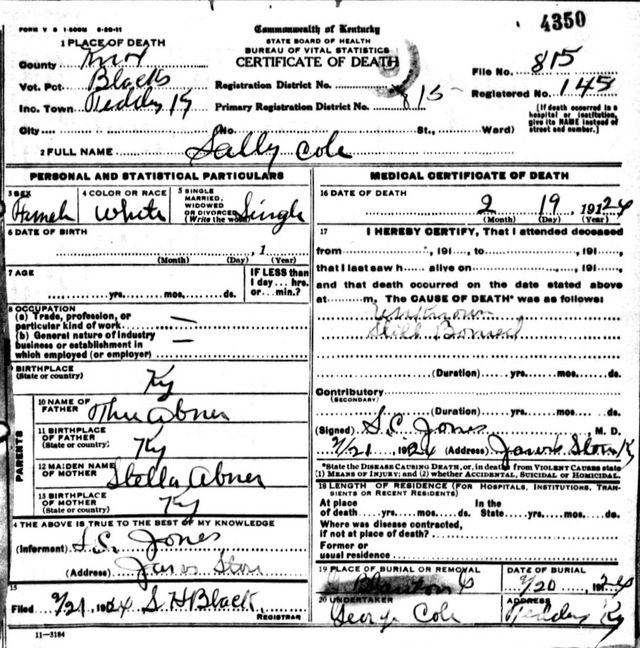 FORM V S 1-500M 5-20-11
Commonwealth of Kentucky
STATE BOARD OF HEALTH
BUREAU OF VITAL STATISTICS
CERTIFICATE OF DEATH
4350
1 PLACE OF DEATH
County Knox
Vot. Pct. Blacks
Inc. Town Teddy Ky
City
Registration District No.
Primary Registration District No. 815
File No. 815
Registered No. 145
(No. St., Ward)
[If death occurred in a hospital or institution, give its NAME instead of street and number.]
2 FULL NAME Sally Cole
PERSONAL AND STATISTICAL PARTICULARS
3 SEX Female
4 COLOR OR RACE White
5 SINGLE MARRIED, WIDOWED OR DIVORCED (Write the word) Single
6 DATE OF BIRTH
, 1
(Month) (Day) (Year)
7 AGE
yrs. mos. ds.
IF LESS than 1 day hrs. or min.?
8 OCCUPATION
(a) Trade, profession, or particular kind of work —
(b) General nature of industry business or establishment in which employed (or employer) —
9 BIRTHPLACE (State or country) Ky
PARENTS
10 NAME OF FATHER Abner
11 BIRTHPLACE OF FATHER (State or country) Ky
12 MAIDEN NAME OF MOTHER Stella Abner
13 BIRTHPLACE OF MOTHER (State or country) Ky
14 THE ABOVE IS TRUE TO THE BEST OF MY KNOWLEDGE
(Informant) S.C. Jones
(Address) Store
15
Filed 2/21 1924 S H Black
REGISTRAR
11—3184
MEDICAL CERTIFICATE OF DEATH
16 DATE OF DEATH
2 19, 1924
(Month) (Day) (Year)
17 I HEREBY CERTIFY, That I attended deceased
from , 191 , to , 191 ,
that I last saw h alive on , 191 ,
and that death occurred on the date stated above
at m. The CAUSE OF DEATH* was as follows:
Unknown
Still Borned
(Duration) yrs. mos. ds.
Contributory
(SECONDARY)
(Duration) yrs. mos. ds.
(Signed) S.C. Jones M. D.
2/21 1924 (Address) Store Ky
*State the DISEASE CAUSING DEATH, or, in deaths from VIOLENT CAUSES state
(1) MEANS OF INJURY; and (2) whether ACCIDENTAL, SUICIDAL OR HOMICIDAL.
18 LENGTH OF RESIDENCE (FOR HOSPITALS, INSTITUTIONS, TRANSIENTS OR RECENT RESIDENTS)
At place of death yrs. mos. ds.
In the State yrs. mos. ds.
Where was disease contracted, if not at place of death?
Former or usual residence
19 PLACE OF BURIAL OR REMOVAL
DATE OF BURIAL
2/20 1924
20 UNDERTAKER
George Cole
ADDRESS
Teddy Ky